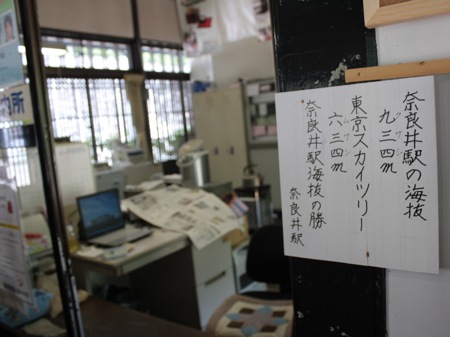 奈良井駅の海抜
九三四m
東京スカイツリー
ムサシ
六三四m
奈良井駅海抜の勝
奈良井駅
内所